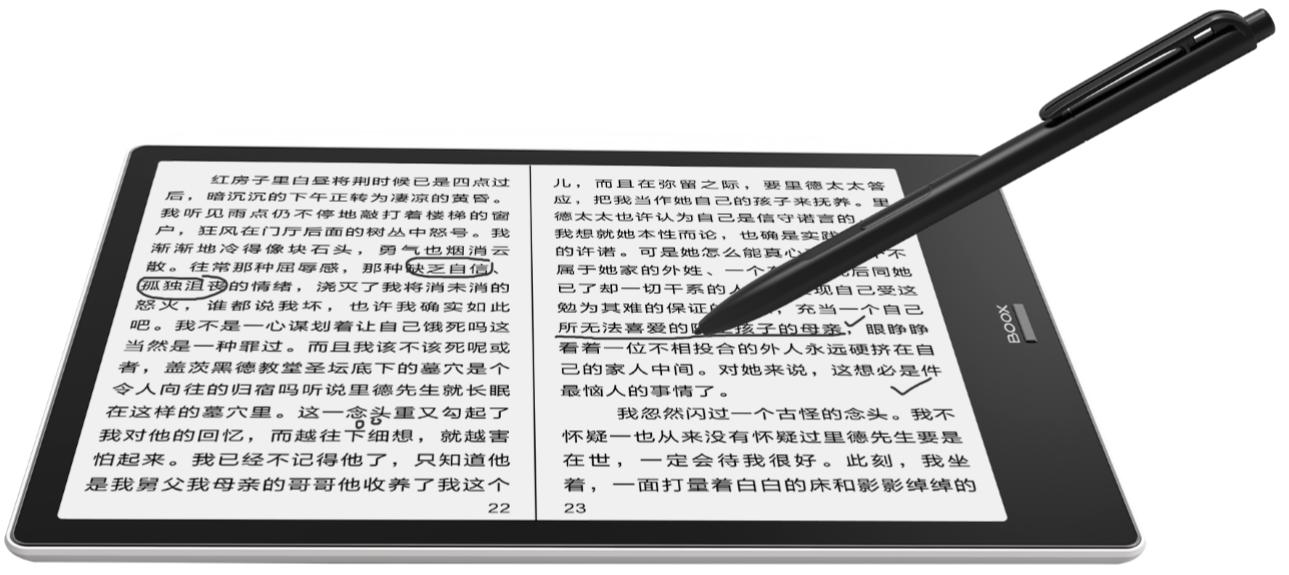 红房子里白昼将荆时候已是四点过
后，暗沉沉的下午正转为凄凉的黄昏。
我听见雨点仍不停地敲打着楼梯的窗
户，狂风在门厅后面的树丛中怒号。我
渐渐地冷得像块石头，勇气也烟消云
散。往常那种屈辱感，那种缺乏自信、
孤独沮丧的情绪，浇灭了我将消未消的
怒火，谁都说我坏，也许我确实如此
吧。我不是一心谋划着让自己饿死吗这
当然是一种罪过。而且我该不该死呢或
者，盖茨黑德教堂圣坛底下的墓穴是个
令人向往的归宿吗听说里德先生就长眠
在这样的墓穴里。这一念头重又勾起了
我对他的回忆，而越往下细想，就越害
怕起来。我已经不记得他了，只知道他
是我舅父我母亲的哥哥他收养了我这个
22
儿，而且在弥留之际，要里德太太答
应，把我当作她自己的孩子来抚养。里
德太太也许认为自己是信守诺言的
我想就她本性而论，也确是实践
的许诺。可是她怎么能真心 不
属于她家的外姓、一个 后同她
已了却一切干系的人 现自己受这
勉为其难的保证的 ，充当一个自己
所无法喜爱的 孩子的母亲，眼睁睁
看着一位不相投合的外人永远硬挤在自
己的家人中间。对她来说，这想必是件
最恼人的事情了。
我忽然闪过一个古怪的念头。我不
怀疑一也从来没有怀疑过里德先生要是
在世，一定会待我很好。此刻，我坐
着，一面打量着白白的床和影影绰绰的
23
BOOX